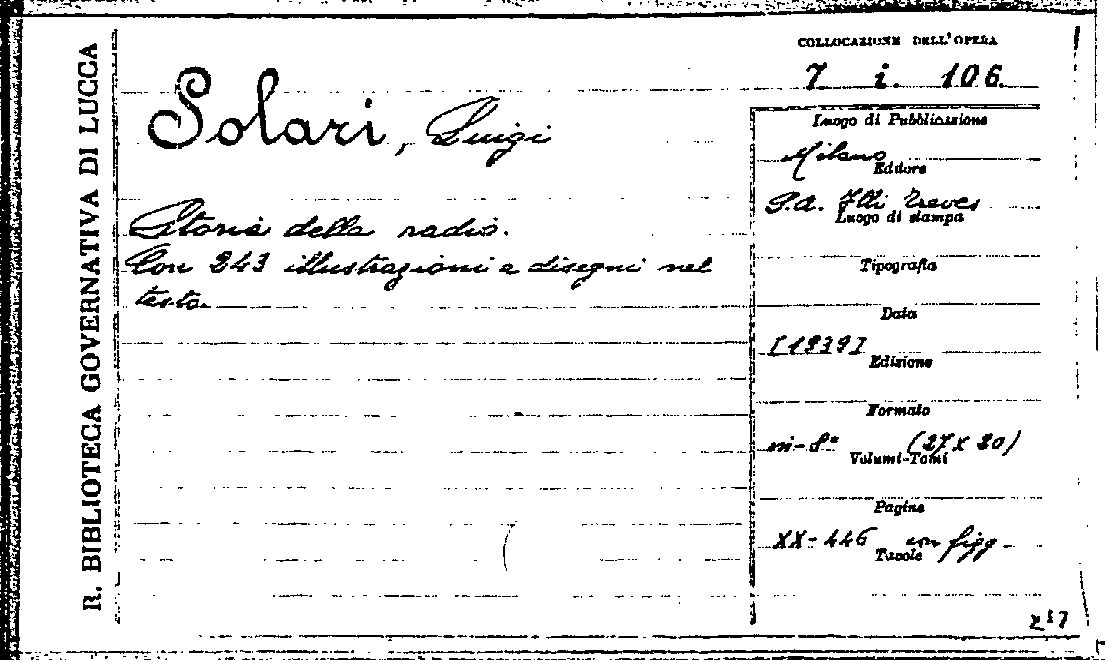 R. BIBLIOTECA GOVERNATIVA DI LUCCA
COLLOCAZIONE DELL'OPERA
7 i. 106.
Solari, Luigi
Storia della radio.
Con 243 illustrazioni e disegni nel
testo.
Luogo di Pubblicazione
Milano
Editore
S.A. Flli Treves
Luogo di stampa
Tipografia
Data
[1939]
Edizione
Formato
in-8° (27 x 20)
Volumi-Tomi
Pagine
XX-446 con figg.
Tavole